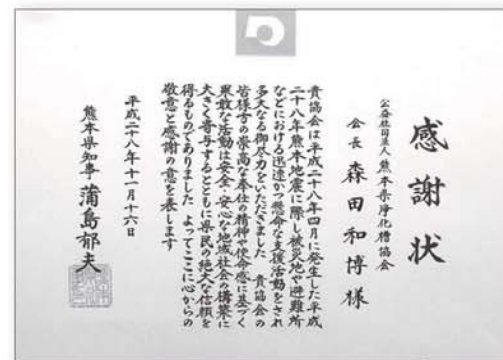 感謝状
公益社団法人熊本県浄化槽協会
会長 森田和博様
貴協会は平成二十八年四月に発生した平成
二十八年熊本地震に際し被災地や避難所
などにおける迅速かつ懸命な支援活動をされ
多大なる御尽力をいただきました 貴協会の
皆様方の崇高な奉仕の精神や使命感に基づく
果敢な活動は安全・安心な地域社会の構築に
大きく寄与するとともに県民の絶大な信頼を
得るものでありました よってここに心からの
敬意と感謝の意を表します
平成二十八年十一月十六日
熊本県知事 蒲島郁夫